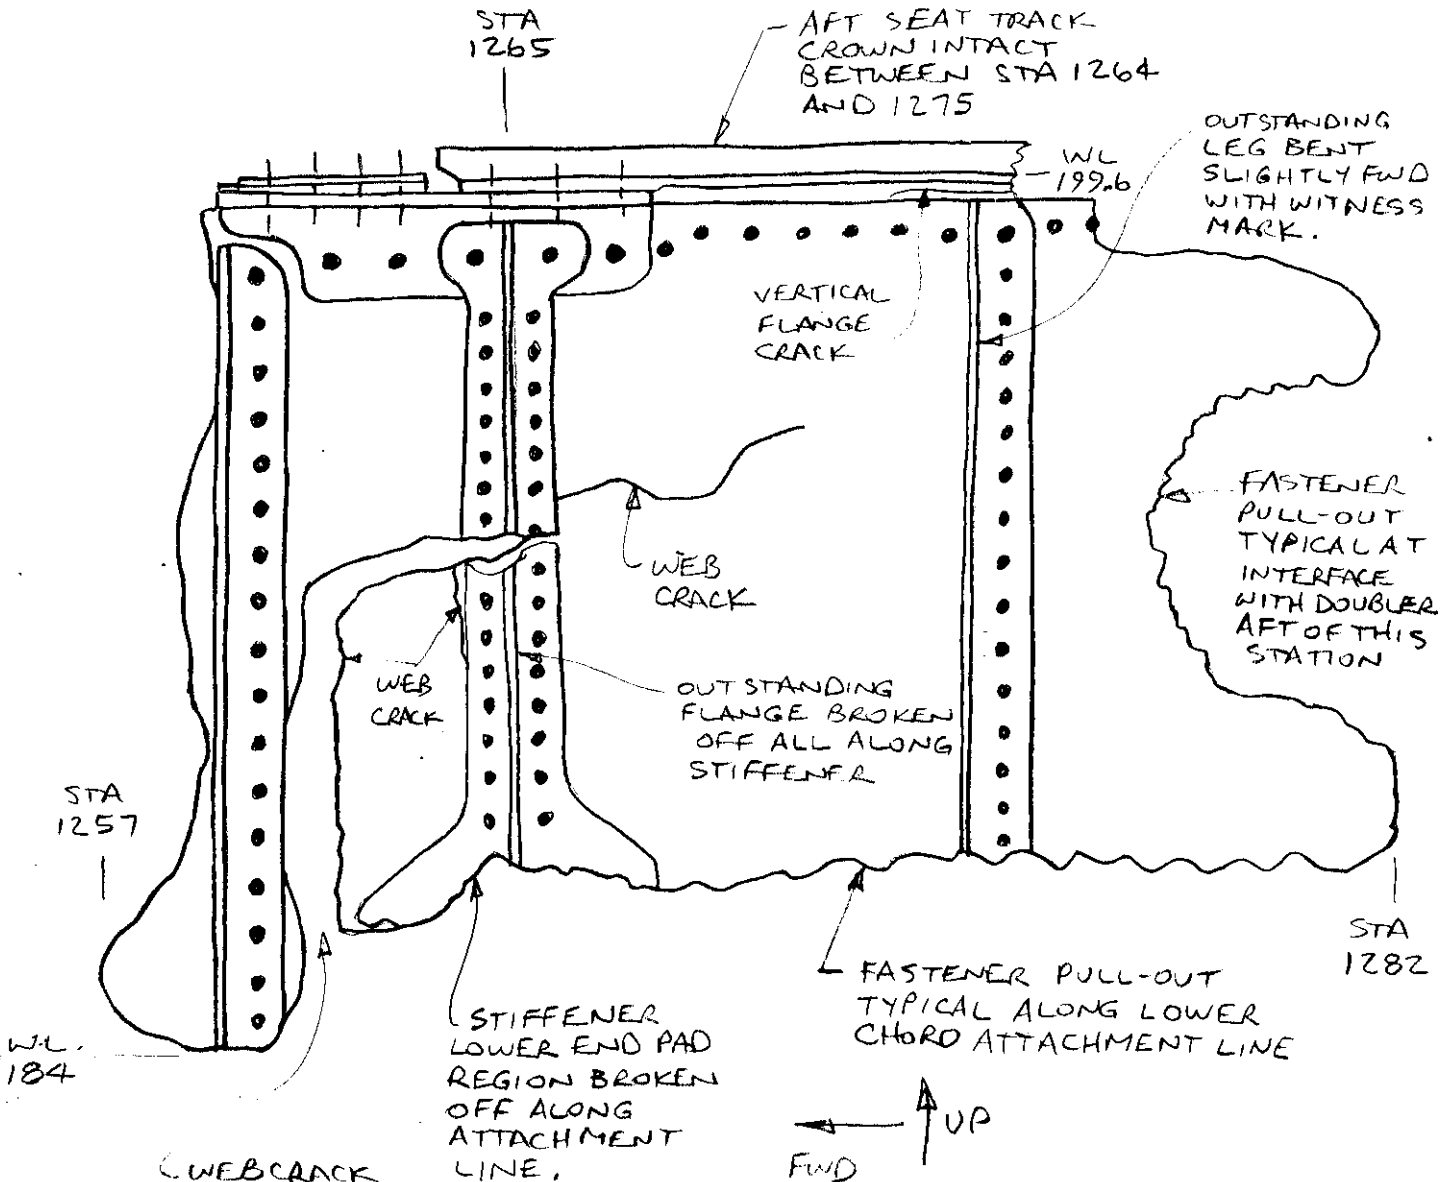 STA
1265
AFT SEAT TRACK
CROWN INTACT
BETWEEN STA 1264
AND 1275
OUTSTANDING
LEG BENT
SLIGHTLY FWD
WITH WITNESS
MARK.
WL
199.6
VERTICAL
FLANGE
CRACK
FASTENER
PULL-OUT
TYPICAL AT
INTERFACE
WITH DOUBLER
AFT OF THIS
STATION
WEB
CRACK
WEB
CRACK
OUTSTANDING
FLANGE BROKEN
OFF ALL ALONG
STIFFENER
STA
1257
STA
1282
FASTENER PULL-OUT
TYPICAL ALONG LOWER
CHORD ATTACHMENT LINE
STIFFENER
LOWER END PAD
REGION BROKEN
OFF ALONG
ATTACHMENT
LINE.
W.L.
184
UP
FWD
WEB CRACK